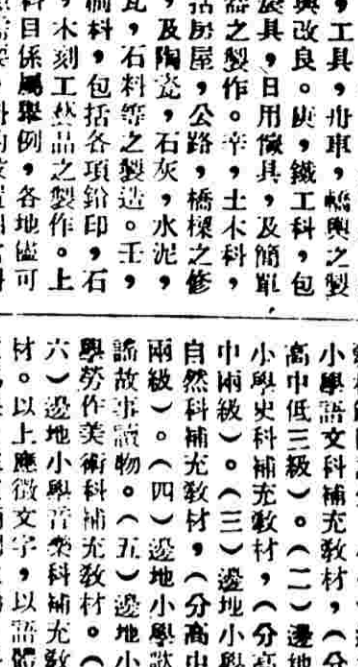 ，工具，舟車，轎輿之製
與改良。庚，鐵工科，包
農具，日用傢具，及簡單
器之製作。辛，土木科，
括房屋，公路，橋樑之修
，及陶瓷，石灰，水泥，
瓦，石料等之製造。壬，
刷科，包括各項鉛印，石
，木刻工藝品之製作。上
科目係屬舉例，各地儘可
小學語文科補充教材，（分
高中低三級）。（二）邊地
小學史科補充教材，（分高
中兩級）。（三）邊地小學
自然科補充教材，（分高中
兩級）。（四）邊地小學歌
謠故事讀物。（五）邊地小
學勞作美術科補充教材。（
六）邊地小學音樂科補充教
材。以上應徵文字，以語體